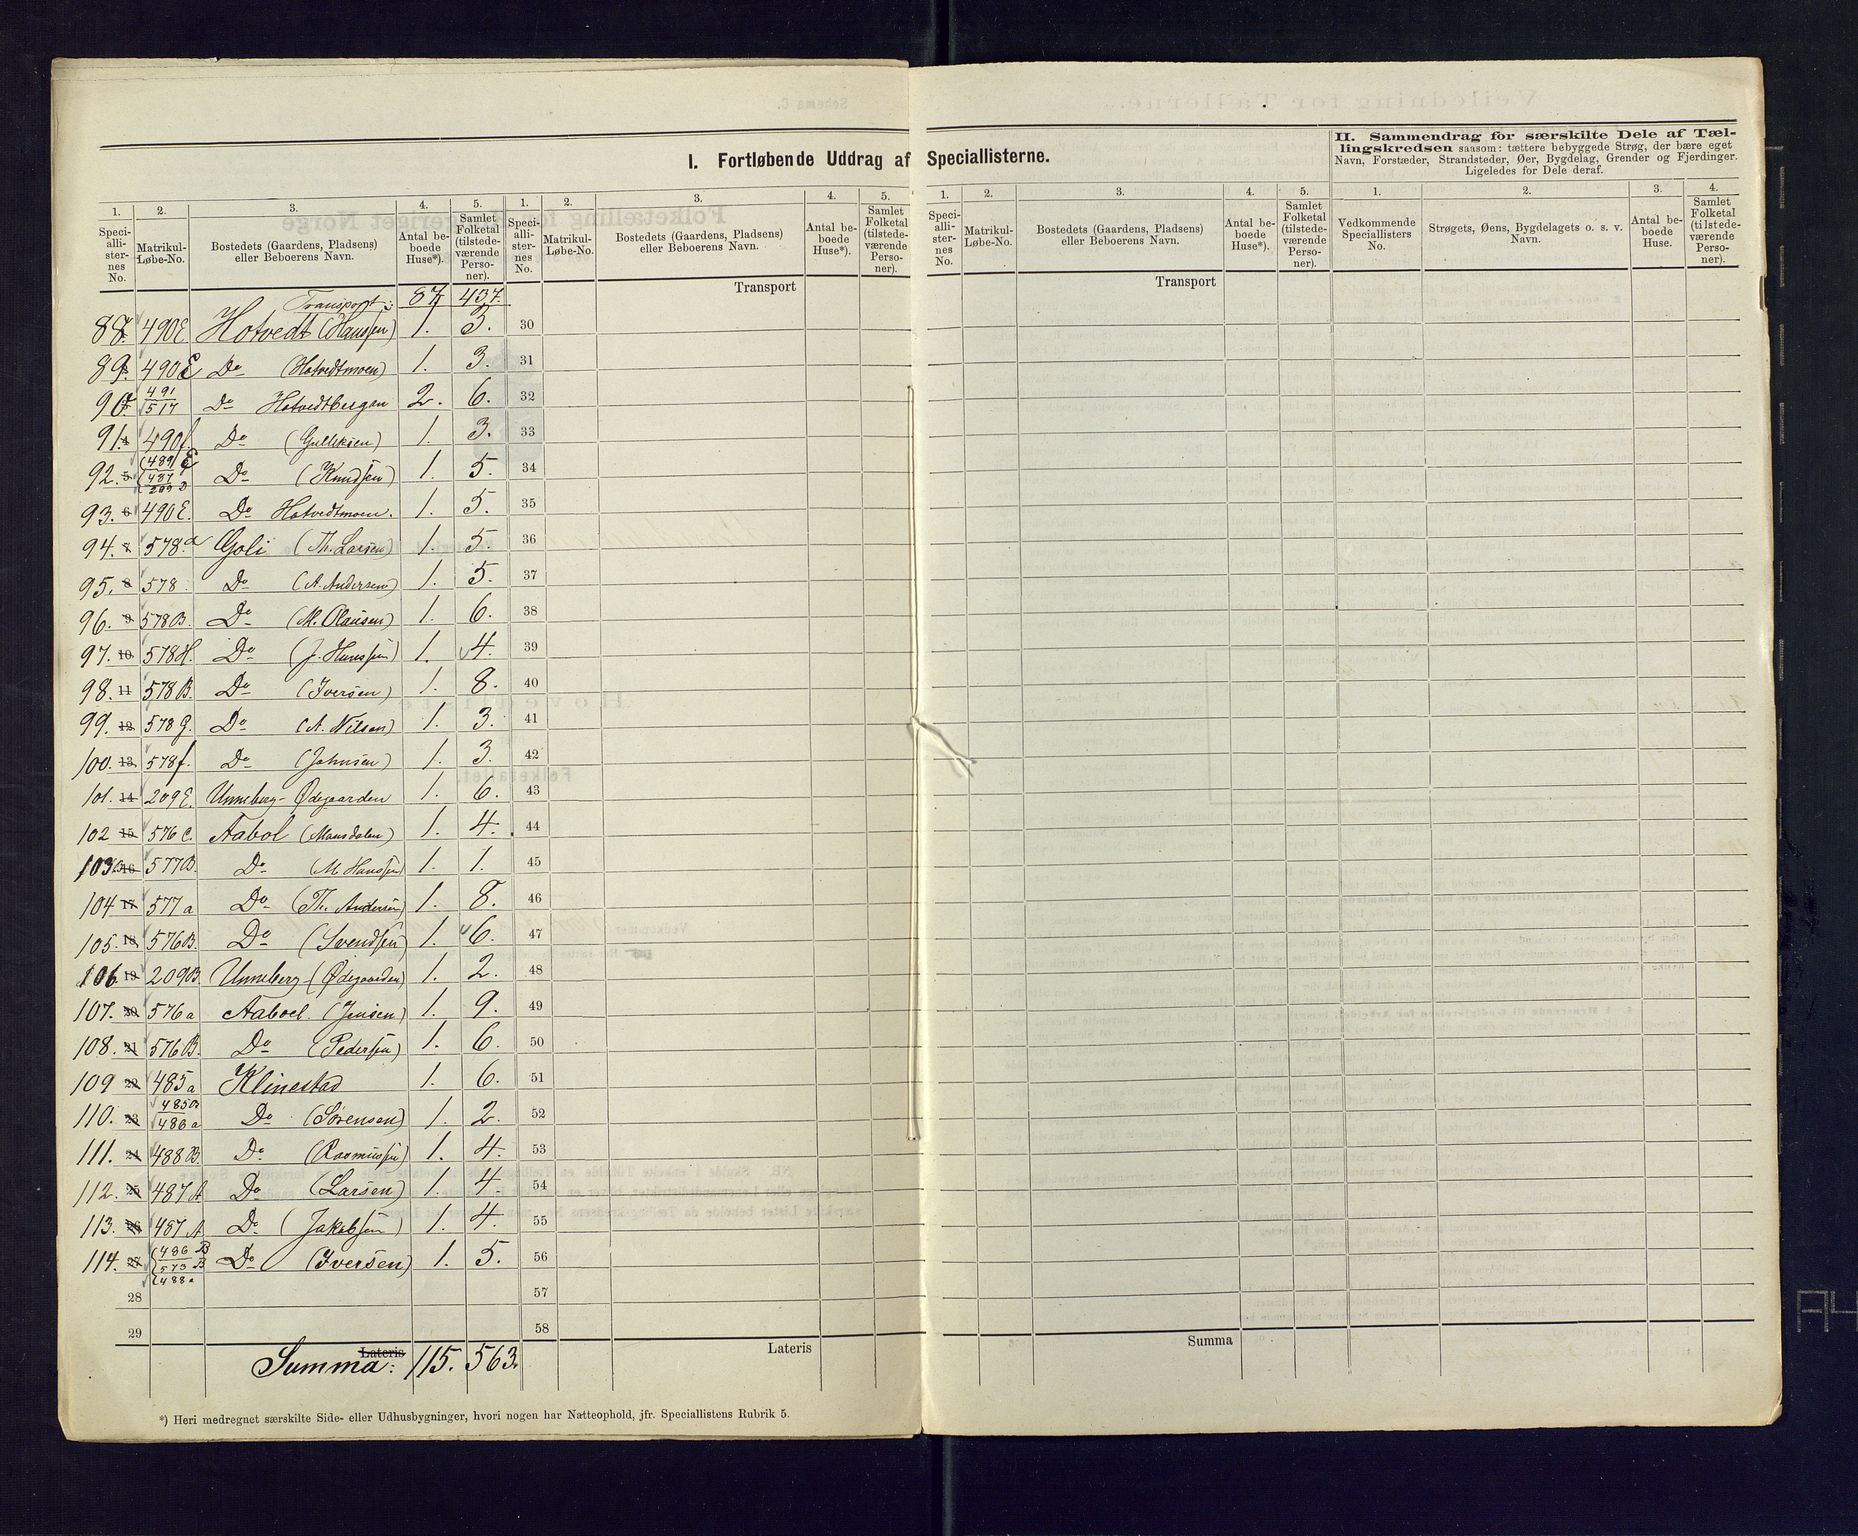 I. Fortløbende Uddrag af Speciallisterne.
II. Sammendrag for særskilte Dele af Tæl-
lingskredsen saasom: tættere bebyggede Strøg, der bære eget
Navn, Forstæder, Strandsteder, Øer, Bygdelag, Grender og Fjerdinger.
Ligeledes for Dele deraf.
1. 2. 3. 4. 5. 1. 2. 3. 4. 5. 1. 2. 3. 4. 5. 1. 2. 3. 4.
Speci-allister-nes No. Matrikul-Løbe-No. Bostedets (Gaardens, Pladsens) eller Beboerens Navn. Antal be-boede Huse*). Samlet Folketal (tilstede-værende Perso-ner).
Speci-allister-nes No. Matrikul-Løbe-No. Bostedets (Gaardens, Pladsens) eller Beboerens Navn. Antal be-boede Huse*). Samlet Folketal (tilstede-værende Perso-ner).
Speci-allister-nes No. Matrikul-Løbe-No. Bostedets (Gaardens, Pladsens) eller Beboerens Navn. Antal be-boede Huse*). Samlet Folketal (tilstede-værende Perso-ner).
Vedkommende Speciallisters No. Strøgets, Øens, Bygdelagets o. s. v. Navn. Antal be-boede Huse. Samlet Folketal (tilstede-værende Perso-ner).
Transport: 87 437. Transport Transport
88. 490E Hotvedt (Hanssen) 1. 3. 30
89. 490E Do (Hotvedtmoen) 1. 3. 31
90. 491/517 Do Hotvedtbergen 2. 6. 32
91. 4 490f. Do (Gulliksen) 1. 3. 33
92. 5 489E 487 209D Do (Knudsen) 1. 5. 34
93. 6 490E. Do Hotvedtmoen. 1. 5. 35
94. 7 578.a Goli (Th. Larsen) 1. 5. 36
95. 8 578 Do (A. Andersen) 1. 5. 37
96. 9 578B. Do (M. Olausen) 1. 6. 38
97. 10 578H. Do (J. Hanssen) 1. 4. 39
98. 11 578B. Do (Iversen) 1. 8. 40
99. 12 578G. Do (A. Nilsen) 1. 3. 41
100. 13 578f. Do (Johnsen) 1. 3. 42
101. 14 209E. Unneberg-Ødegaarden 1. 6. 43
102 15 576C. Aabol (Mansdalen) 1. 4. 44
103 16 577B. Do (M Hanssen) 1. 1. 45
104 17 577a Do (Th. Andersen) 1. 8. 46
105. 18 576B. Do (Svendsen) 1. 6. 47
106. 19 209B. Unneberg-(Ødegaarden) 1. 2. 48
107. 20 576a Aaboel. (Jensen) 1. 9. 49
108. 21 576B. Do (Pedersen) 1. 6. 50
109 22 485a Klinestad 1. 6. 51
110. 23 485B/486a Do (Sørensen) 1. 2. 52
111. 24 488B. Do (Rasmussen) 1. 4. 53
112. 25 487A Do (Larsen) 1. 4. 54
113. 26 487A Do (Jakobsen) 1. 4. 55
114. 27 486B 573B 488a Do (Iversen) 1. 5. 56
28 57
29 58
Lateris Summa: 115. 563. Lateris Summa
*) Heri medregnet særskilte Side- eller Udhusbygninger, hvori nogen har Natteophold, jfr. Speciallistens Rubrik 5.